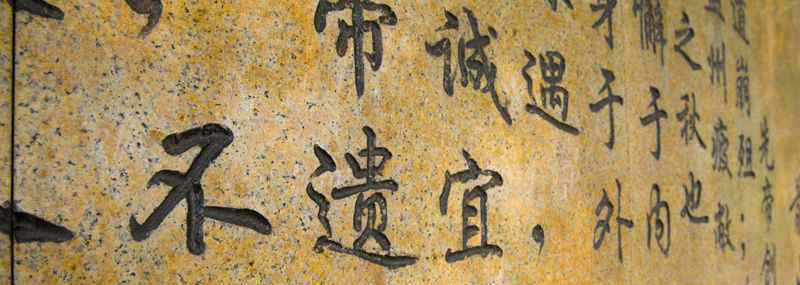 先帝創
道崩殂；
州疲敝
之秋也
懈于内
身于外
遇，
誠宜
帝遺
不